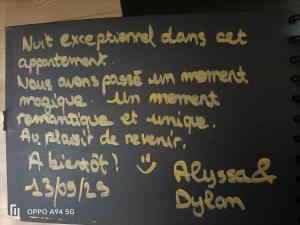 Nuit exceptionnel dans cet
appartement.
Nous avons passé un moment
magique. Un moment
romantique et unique.
Au plaisir de revenir.
A bientôt !
Alyssa &
13/09/23
Dylan
OPPO A94 5G